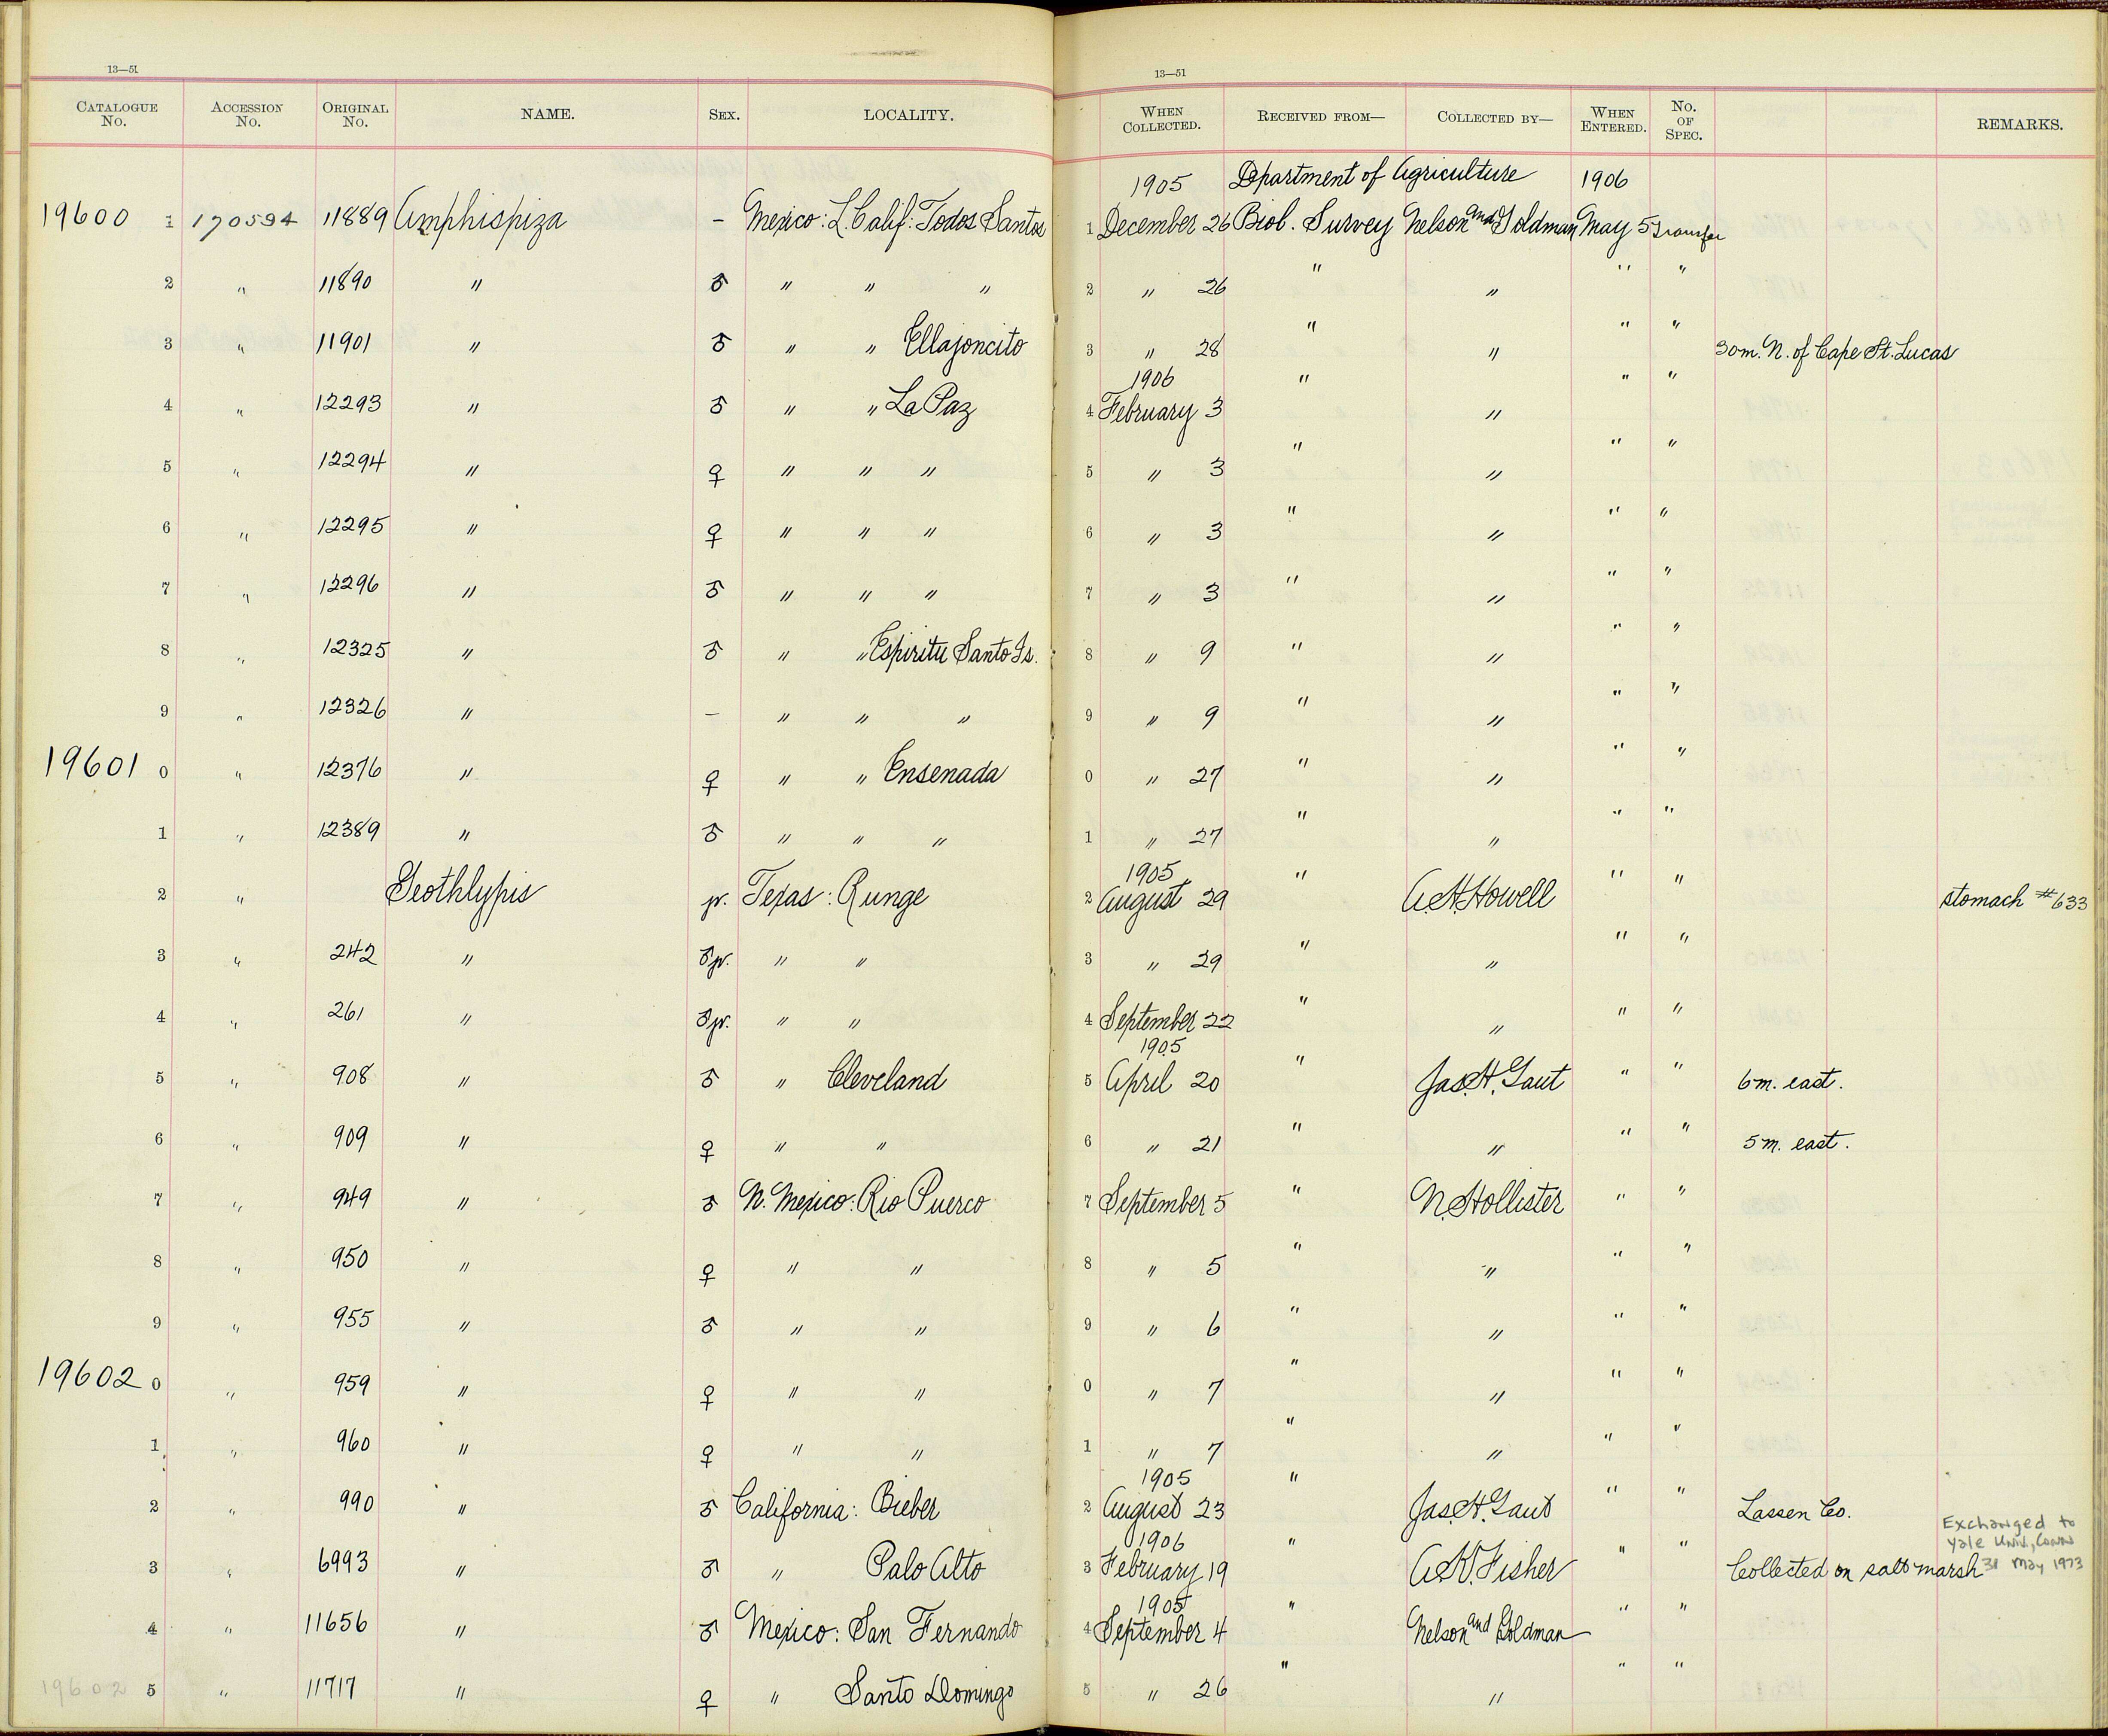 13—51 13—51
CATALOGUE No. ACCESSION No. ORIGINAL No. NAME. SEX. LOCALITY. WHEN COLLECTED. RECEIVED FROM— COLLECTED BY— WHEN ENTERED. No. OF SPEC. REMARKS.
1905 Department of Agriculture 1906
19600 1 170594 11889 Amphispiza – Mexico: L. Calif: Todos Santos 1 December 26 Biol. Survey Nelson and Goldman May 5 Transfer
2 " 11890 " ♂ " " " 2 " 26 " " " "
3 " 11901 " ♂ " " Ellajoncito 3 " 28 " " " " 30 m. N. of Cape St. Lucas
1906
4 " 12293 " ♂ " " La Paz 4 February 3 " " " "
5 " 12294 " ♀ " " " 5 " 3 " " " "
6 " 12295 " ♀ " " " 6 " 3 " " " "
7 " 12296 " ♂ " " " 7 " 3 " " " "
8 " 12325 " ♂ " " Espiritu Santo Is. 8 " 9 " " " "
9 " 12326 " – " " " 9 " 9 " " " "
19601 0 " 12376 " ♀ " " Ensenada 0 " 27 " " " "
1 " 12389 " ♂ " " " 1 " 27 " " " "
1905
2 " Geothlypis jr. Texas: Runge 2 August 29 " A. H. Howell " " stomach #633
3 " 242 " ♂ jr. " " 3 " 29 " " " "
4 " 261 " ♂ jr. " " 4 September 22 " " " "
1905
5 " 908 " ♂ " Cleveland 5 April 20 " Jas. H. Gaut " " 6 m. east.
6 " 909 " ♀ " " 6 " 21 " " " " 5 m. east.
7 " 949 " ♂ N. Mexico: Rio Puerco 7 September 5 " N. Hollister " "
8 " 950 " ♀ " " 8 " 5 " " " "
9 " 955 " ♂ " " 9 " 6 " " " "
19602 0 " 959 " ♀ " " 0 " 7 " " " "
1 " 960 " ♀ " " 1 " 7 " " " "
1905
2 " 990 " ♂ California: Bieber 2 August 23 " Jas. H. Gaut " " Lassen Co.
Exchanged to
Yale Univ., Conn
31 May 1973
1906
3 " 6993 " ♂ " Palo Alto 3 February 19 " A. K. Fisher " " Collected on salt marsh
1905
4 " 11656 " ♂ Mexico: San Fernando 4 September 4 " Nelson and Goldman " "
19602 5 " 11717 " ♀ " Santo Domingo 5 " 26 " " " "